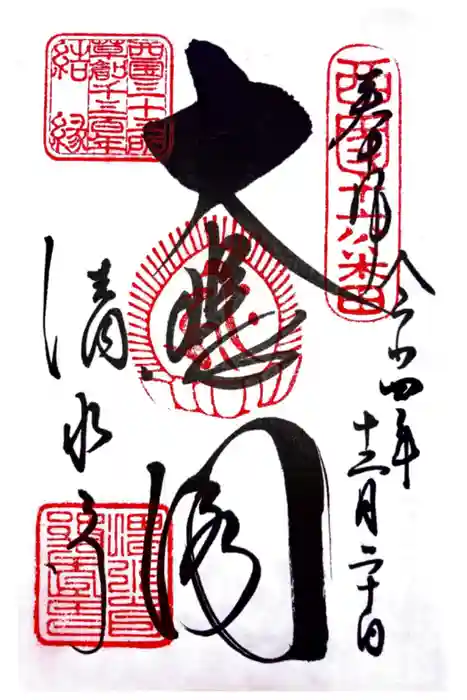 西国十六番
奉拝
令和四年
十二月二十日
大悲閣
西国三十三所
草創千三百年
結縁
清水寺